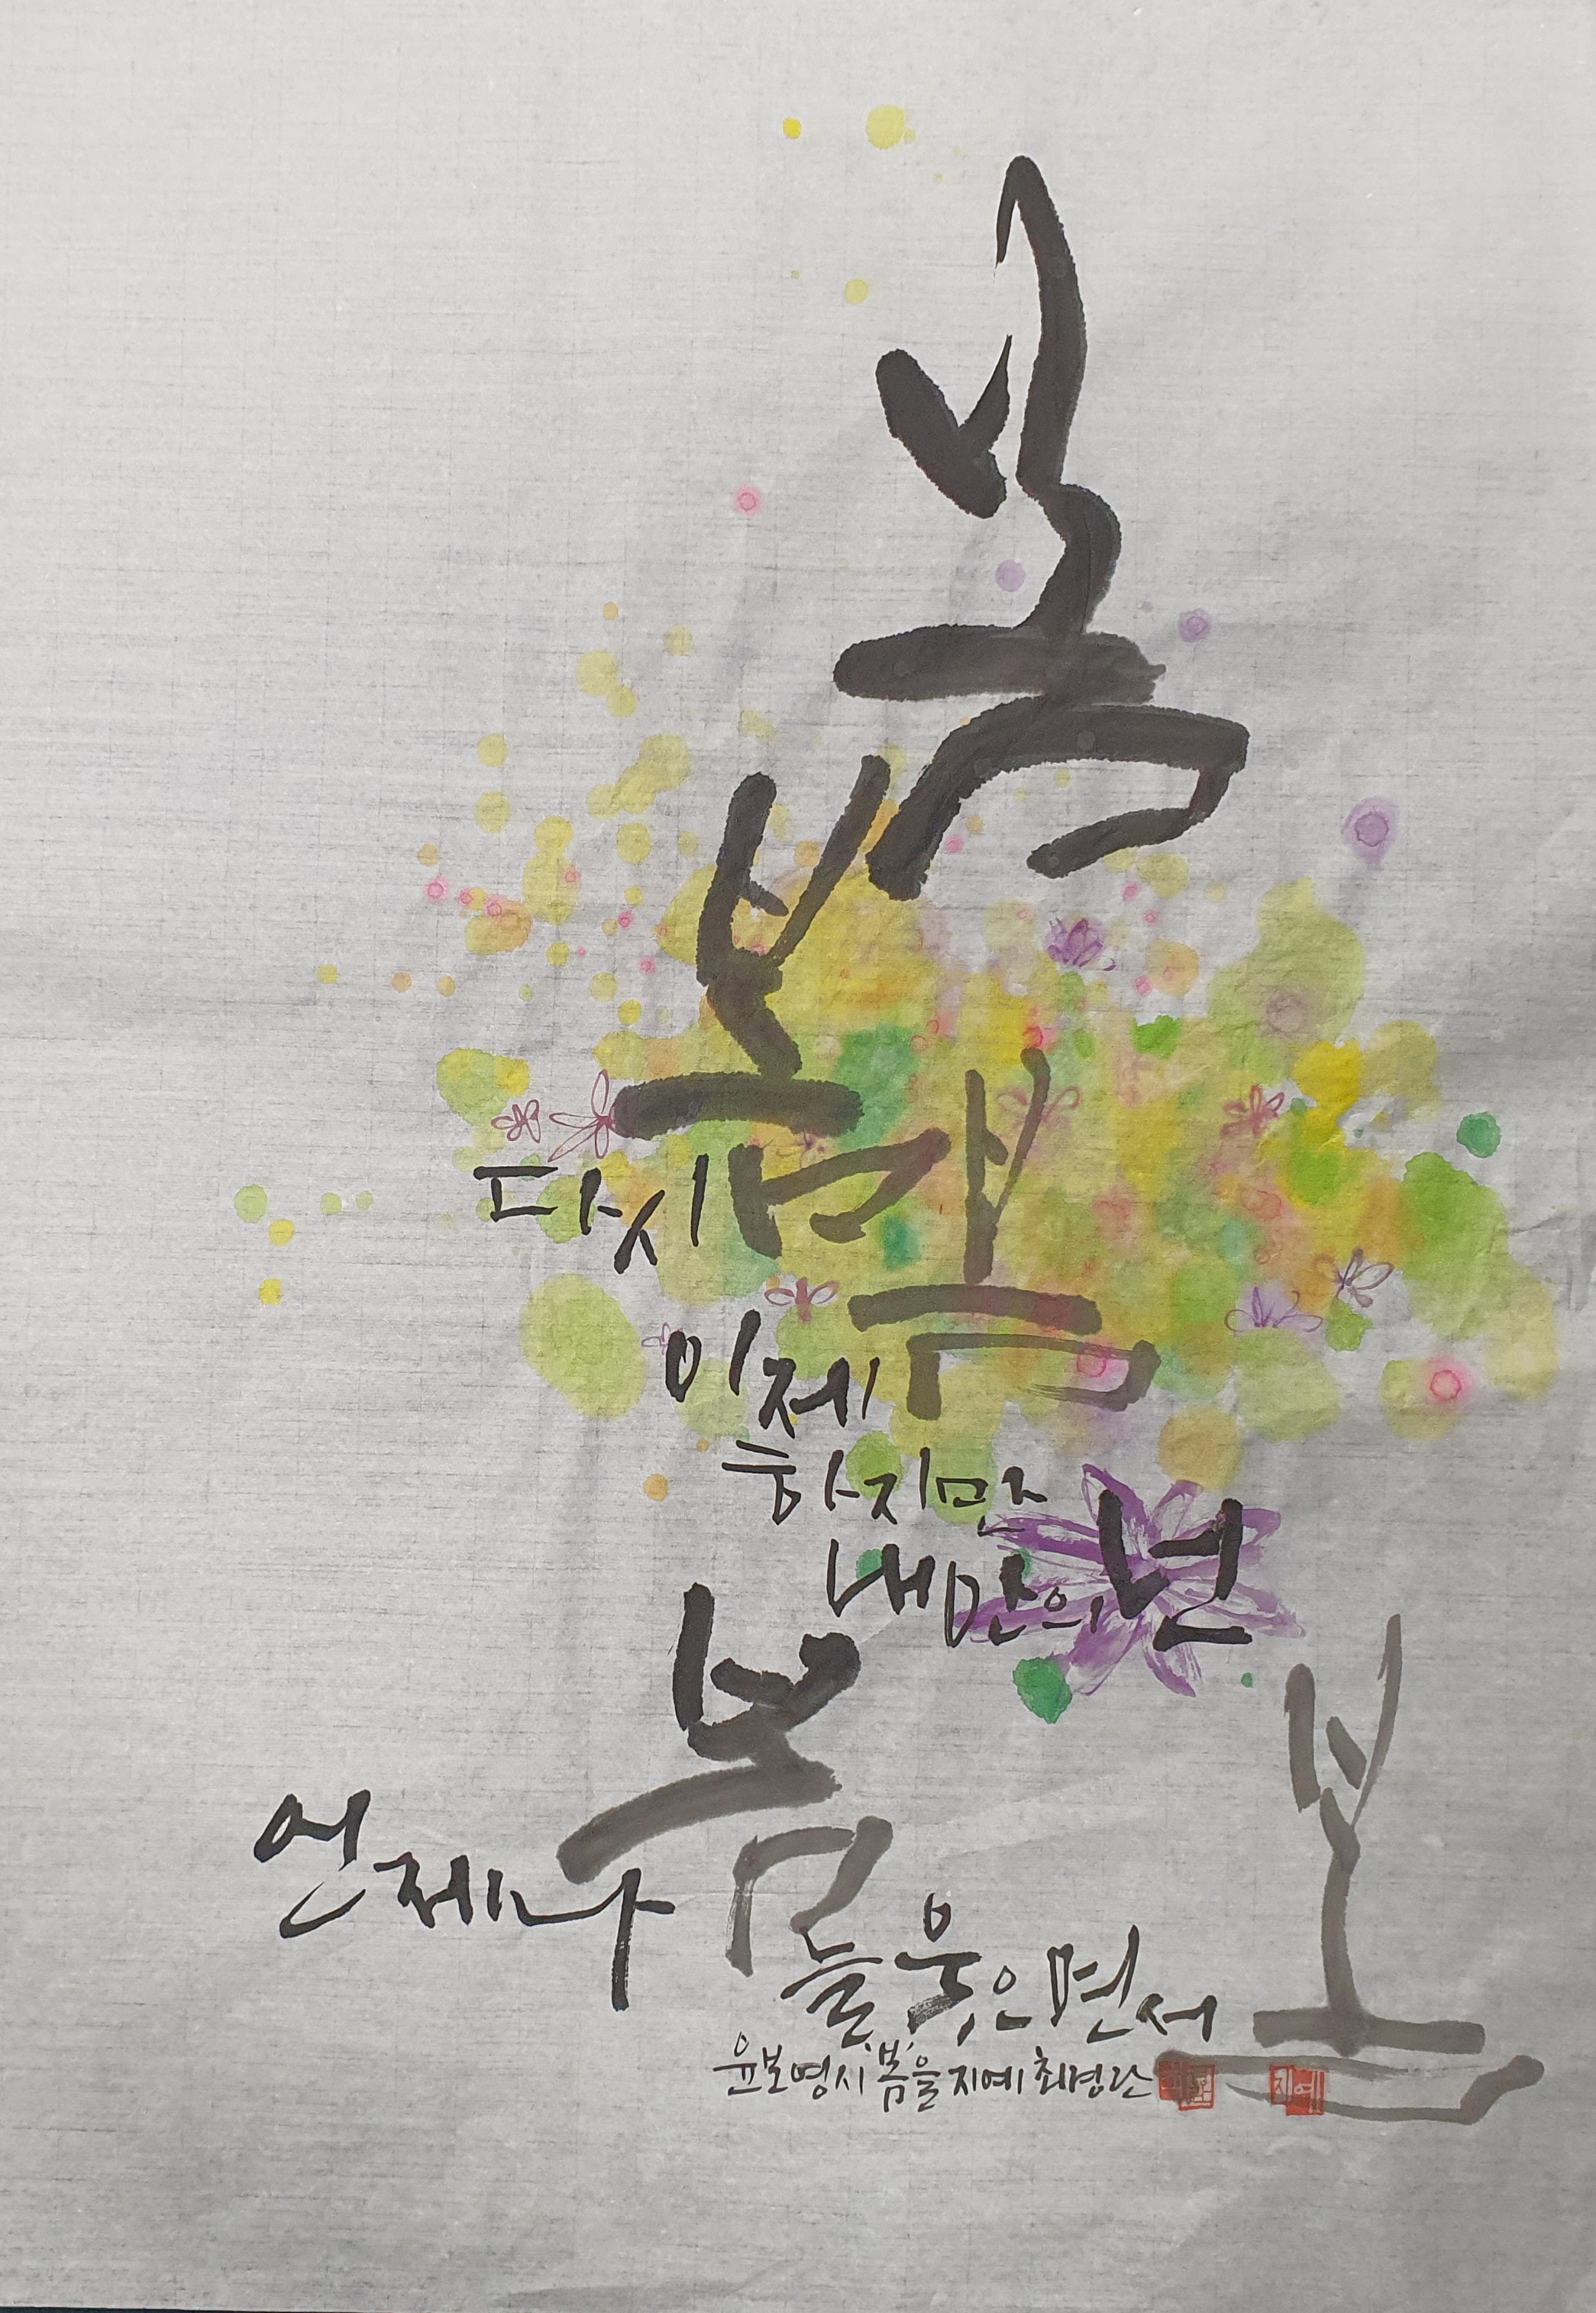 봄
다시 봄
이제 봄
하지만
내 만의 넌
언제나 봄
늘 웃으면서 봄
윤보영시 '봄'을 지예 최경란
지예